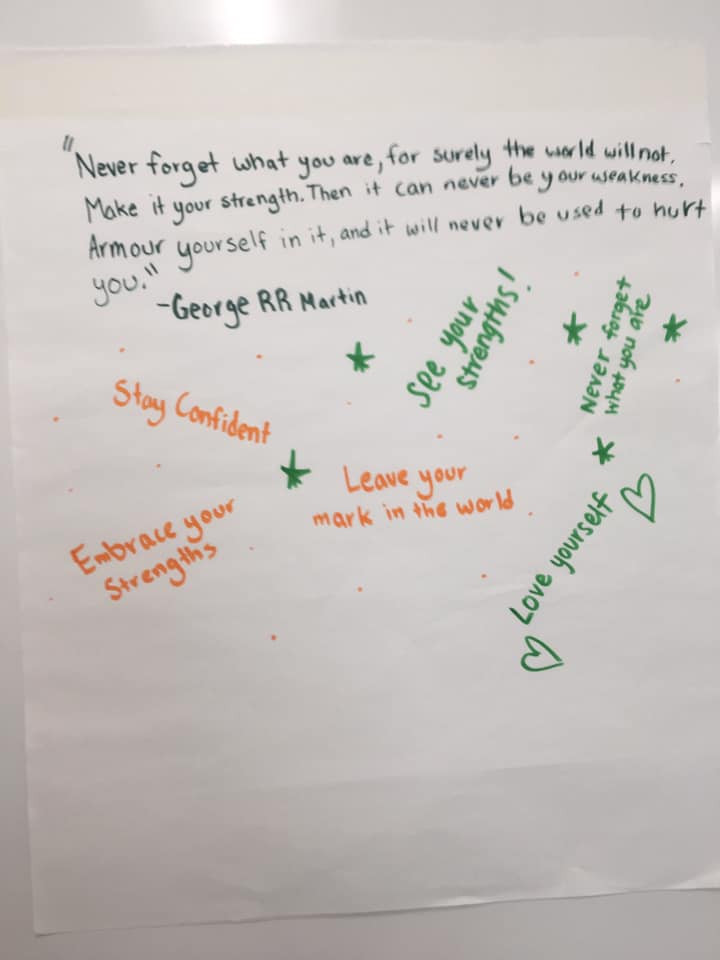 "Never forget what you are, for surely the world will not.
Make it your strength. Then it can never be your weakness.
Armour yourself in it, and it will never be used to hurt
you."
-George RR Martin
See your
strengths!
Never forget
what you are
Stay Confident
Leave your
mark in the world
Embrace your
Strengths
Love yourself